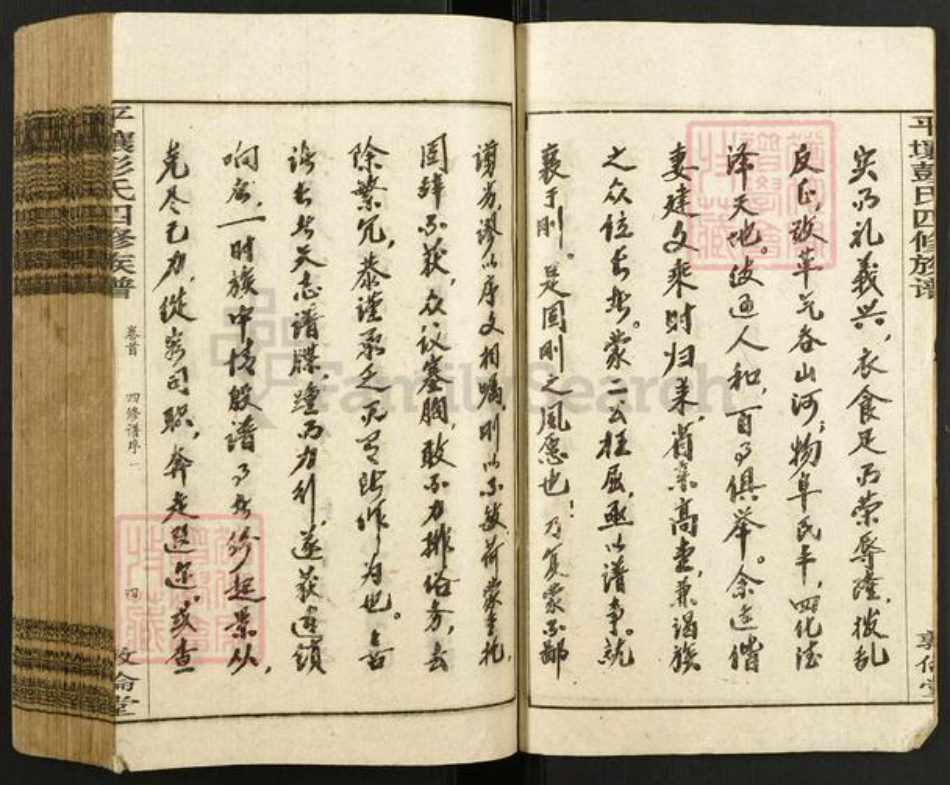 平壤彭氏四修族谱
敦伦堂
实而礼義兴，衣食足而荣辱隆，拨乱
反正，改革气吞山河；物阜民丰，四化德
泽天地。彼通人和，百事俱举。余适偕
妻建文乘时归来，省亲高堂，兼谒族
之众位长者。蒙二公枉屈，亟以谱事就
襄于刚。是固刚之夙愿也！乃复蒙不鄙
谫劣，谬以序文相嘱，刚以不敏，荷蒙重托，
固辞不获，众议塞胸，敢不力摒俗务，去
除繁冗，恭谨承之
作为也。
志谱牒，踵而力行，遂获建硕
响应，一时族中情殷谱事者纷起景从，
克尽己力，从容司职，奔走遐迩。或查
平壤彭氏四修族谱
卷首
四修谱序一
四
敦伦堂
FamilySearch